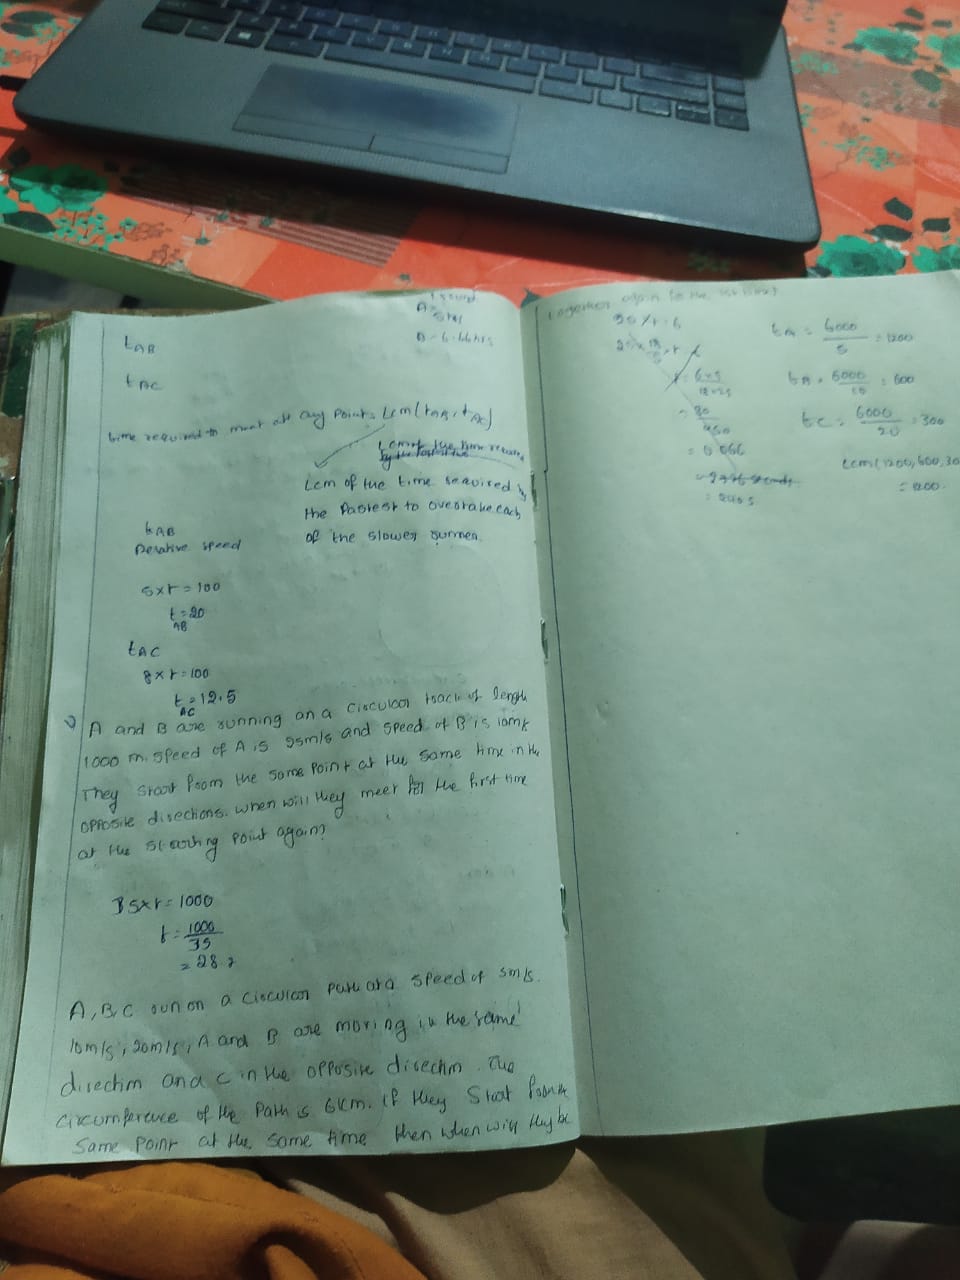 A =
tAB
tAC
time required to meet at any point = Lcm (tAB, tAC)
Lcm of the time required by
the fastest to overtake each
of the slower runner.
tAB
Relative speed
5xt = 100
t = 20
AB
tAC
8xt = 100
t = 12.5
AC
A and B are running on a circular track of length
1000 m. Speed of A is 25m/s and speed of B is 10m/s
They start from the same point at the same time in the
opposite directions. When will they meet for the first time
at the starting point again?
35xt = 1000
t = 1000
35
= 28
A, B, C run on a circular path at a speed of 5m/s.
10m/s, 20m/s, A and B are moving in the same
direction and C in the opposite direction. The
circumference of the path is 6km. If they start from the
same point at the same time then when will they be
together again for the 1st time?
tA = 6000 = 1200
5
= 6000 = 600
10
tC = 6000 = 300
20
= 0.066
= 240s
Lcm (1200, 600, 30
= 1200